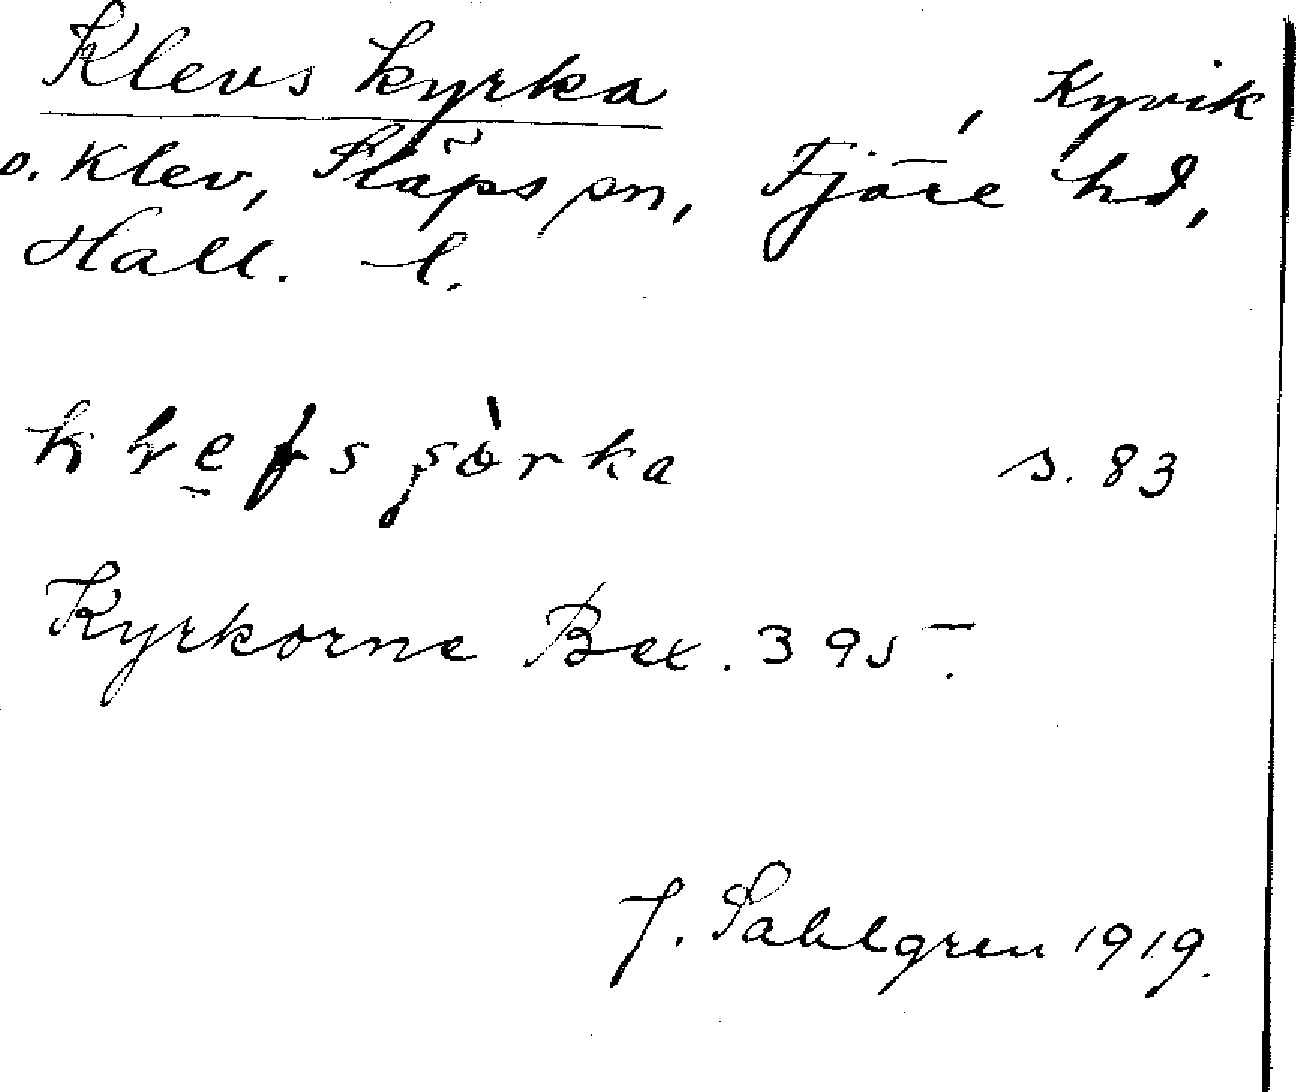 Klevs kyrka , Kyvik
o. Klev, Släps sn, Fjäre hd,
Hall. l.
s. 83
Kyrkorne Bex. 395.
J. Sahlgren 1919.